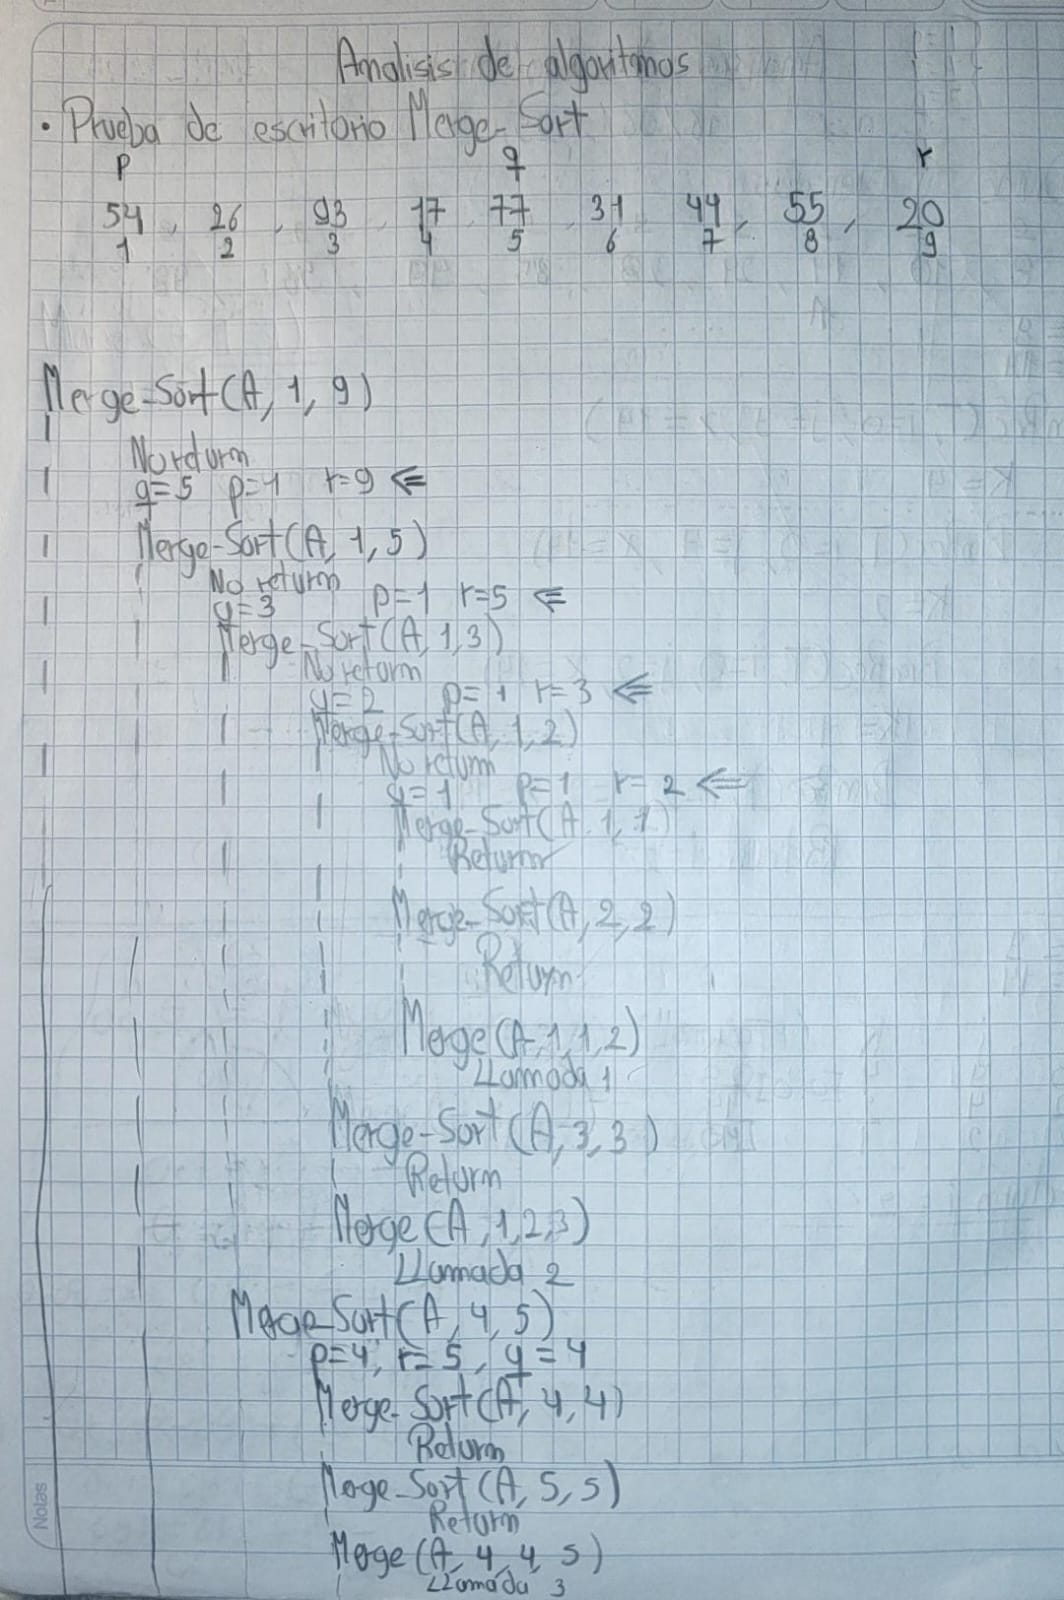 Analisis de algoritmos
• Prueba de escritorio Merge-Sort
p q r
54, 26, 93, 17 77 31 44, 55, 20
1 2 3 4 5 6 7 8 9
Merge-Sort(A, 1, 9)
No return
q=5 p=1 r=9 ⇐
Merge-Sort(A, 1, 5)
No return
q=3 p=1 r=5 ⇐
Merge-Sort(A, 1, 3)
No return
q=2 p=1 r=3 ⇐
Merge-Sort(A, 1, 2)
No return
q=1 p=1 r=2 ⇐
Merge-Sort(A, 1, 1)
Return
Merge-Sort(A, 2, 2)
Return
Merge(A, 1, 1, 2)
LLamada 1
Merge-Sort(A, 3, 3)
Return
Merge(A, 1, 2, 3)
LLamada 2
Merge-Sort(A, 4, 5)
p=4, r=5, q=4
Merge-Sort(A, 4, 4)
Return
Merge-Sort(A, 5, 5)
Return
Merge(A, 4, 4, 5)
LLamada 3
Notas